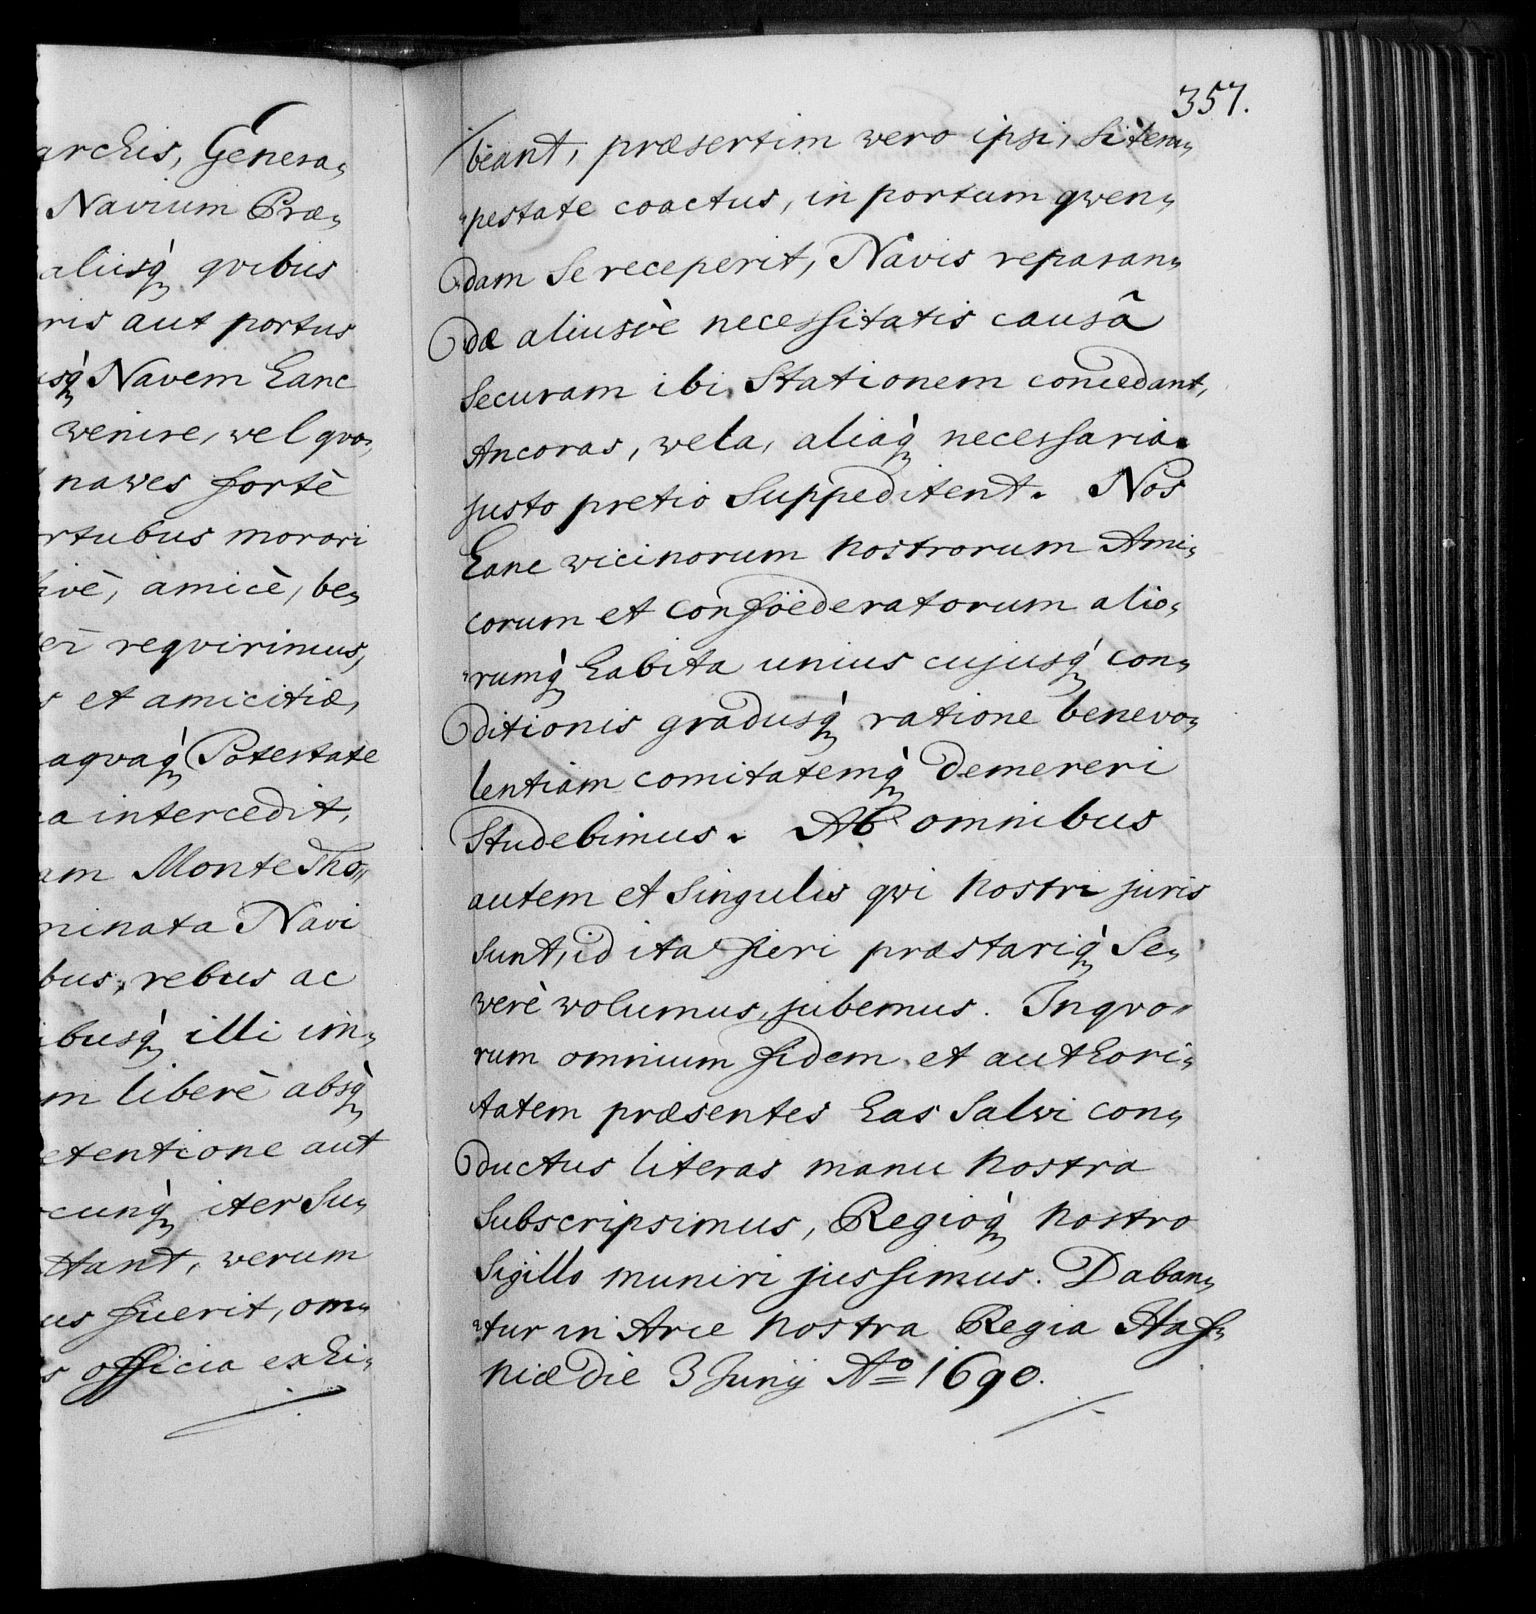 archis, Genera„
Navium Præ„
aliisq́ qvibus
ris aut portus
sq́ Navem hanc
wenire, wel qvo„
nawes fortè
rtubus morari
ivè, amicè, be„
er reqvirimus,
s et amicitiæ,
aqvaq́ Potestate
a intercedit,
am Monte Tho„
minata Navi
bus, rebus ac
ibusq́ illi im„
m liberè absq́
etentione aut
cunq́ iter su„
ttant, werum
us fuerit, om„
s officia exhi„
357.
beant, præsertim wero ipsi, si tem„
„pestate coactus, in portum qwen„
dam se receperit, Navis reparan„
dæ aliusvè necessitatis causâ
securam ibi stationem concedant,
Ancoras, wela, aliaq́ necessaria
justo pretio suppeditent. Nos
hanc wicinorum nostrorum Ami„
corum et Confoëderatorum alio„
„rumq́ habita unius cujusq́ con„
ditionis gradusq́ ratione benevo„
lentiam comitatemq́ demereri
studebimus. Ab omnibus
autem et singulis qvi nostri juris
sunt, id ita fieri præstariq́ se„
werè wolumus, jubemus. In qvo„
rum omnium fidem et authori„
tatem præsentes has salwi con„
ductus literas manu nostra
subscripsimus, Regioq́ nostro
sigillo muniri jussimus. Daban„
„tur in Arce nostra Regia Haf„
niæ die 3 Junij Aº 1690.